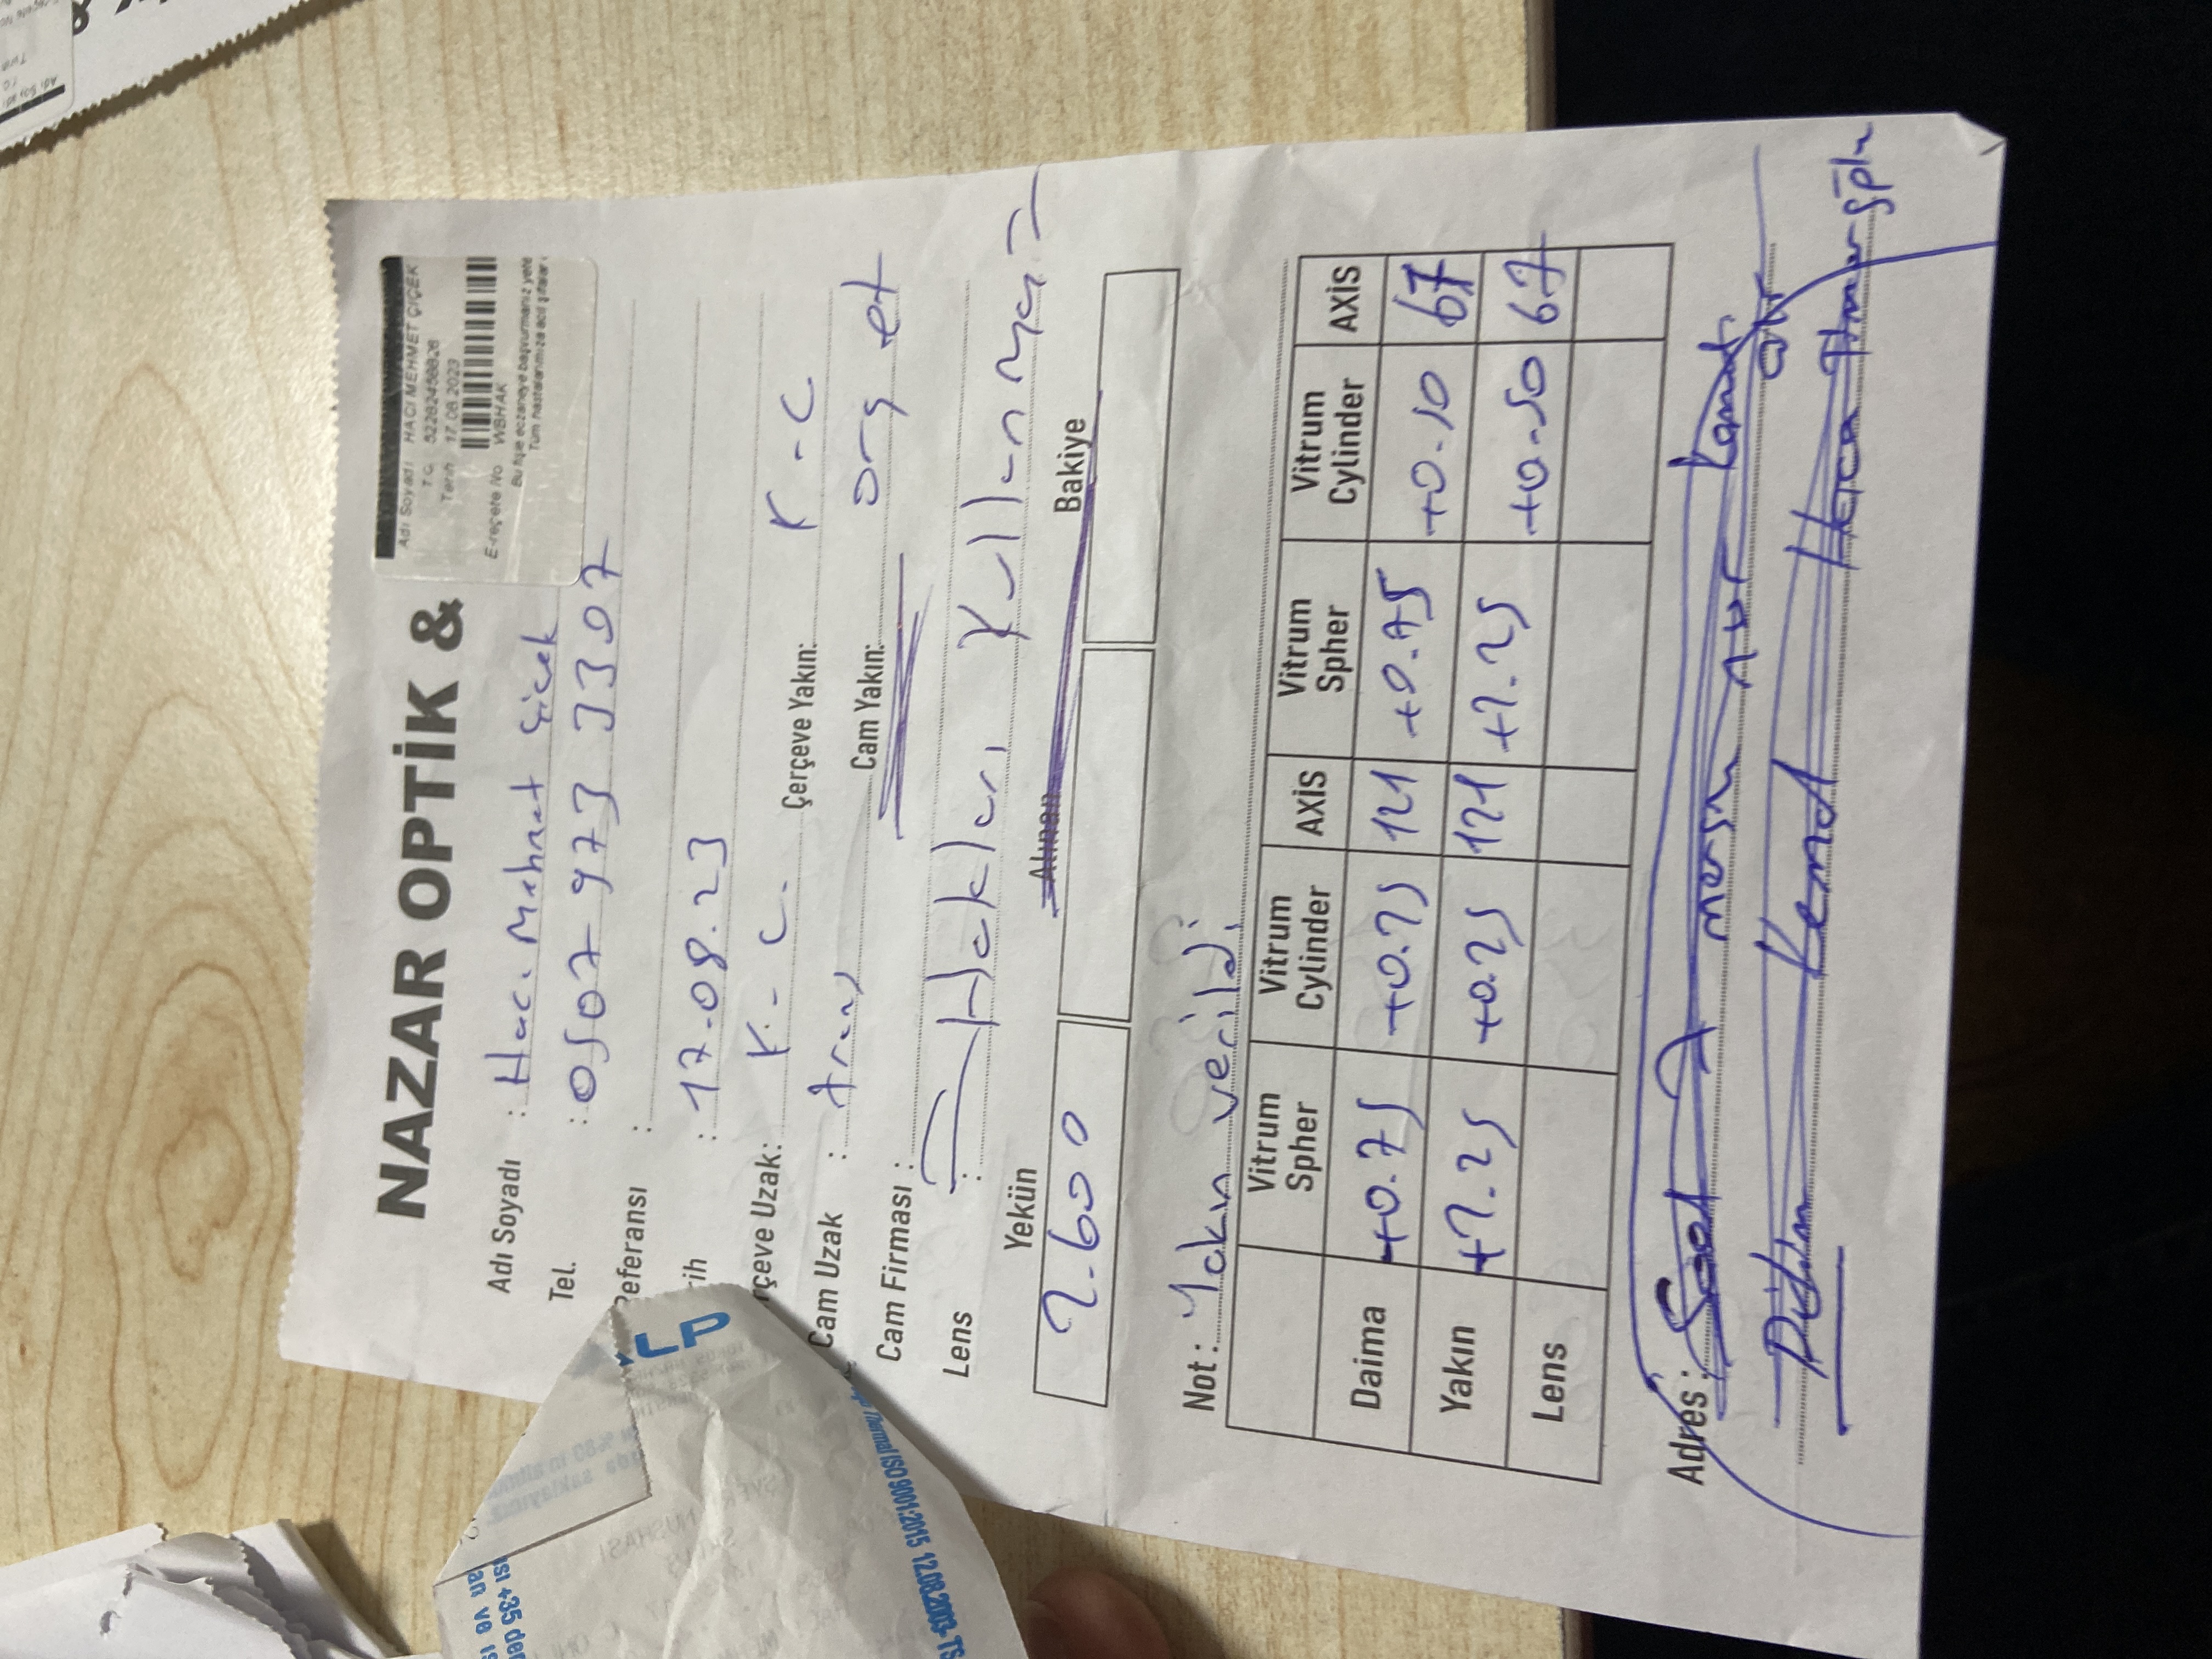 NAZAR OPTİK &
Adı Soyadı : HACI MEHMET ÇİÇEK
T.C. 52282458826
Tarih 17.08.2023
E-reçete No WBHAK
Bu fişle eczaneye başvurmanız yete
Tüm hastalarımıza acil şifalar
Adı Soyadı : Hacı Mehmet Çiçek
Tel. : 0507 973 3307
Referansı :
rih : 17.08.23
rçeve Uzak: K - C. Çerçeve Yakın: K - C
Cam Uzak : trans Cam Yakın: org et
Cam Firması :
Lens : Hakları Kullanmış
Yekün Alınan Bakiye
2.600
Not : Yakın verildi
Vitrum Spher Vitrum Cylinder AXİS Vitrum Spher Vitrum Cylinder AXİS
Daima +0.75 +0.25 121 +0.75 +0.50 67
Yakın +2.25 +0.25 121 +2.25 +0.50 67
Lens
Adres : Saat 7 mersin nur
Kend Hoca
LP
ISO 9001:2015 12.08.2003-TS